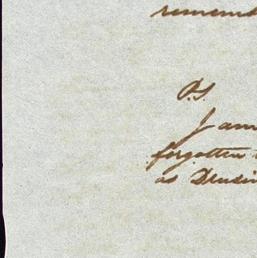 rememb
P.S.
I am
forgotten
as